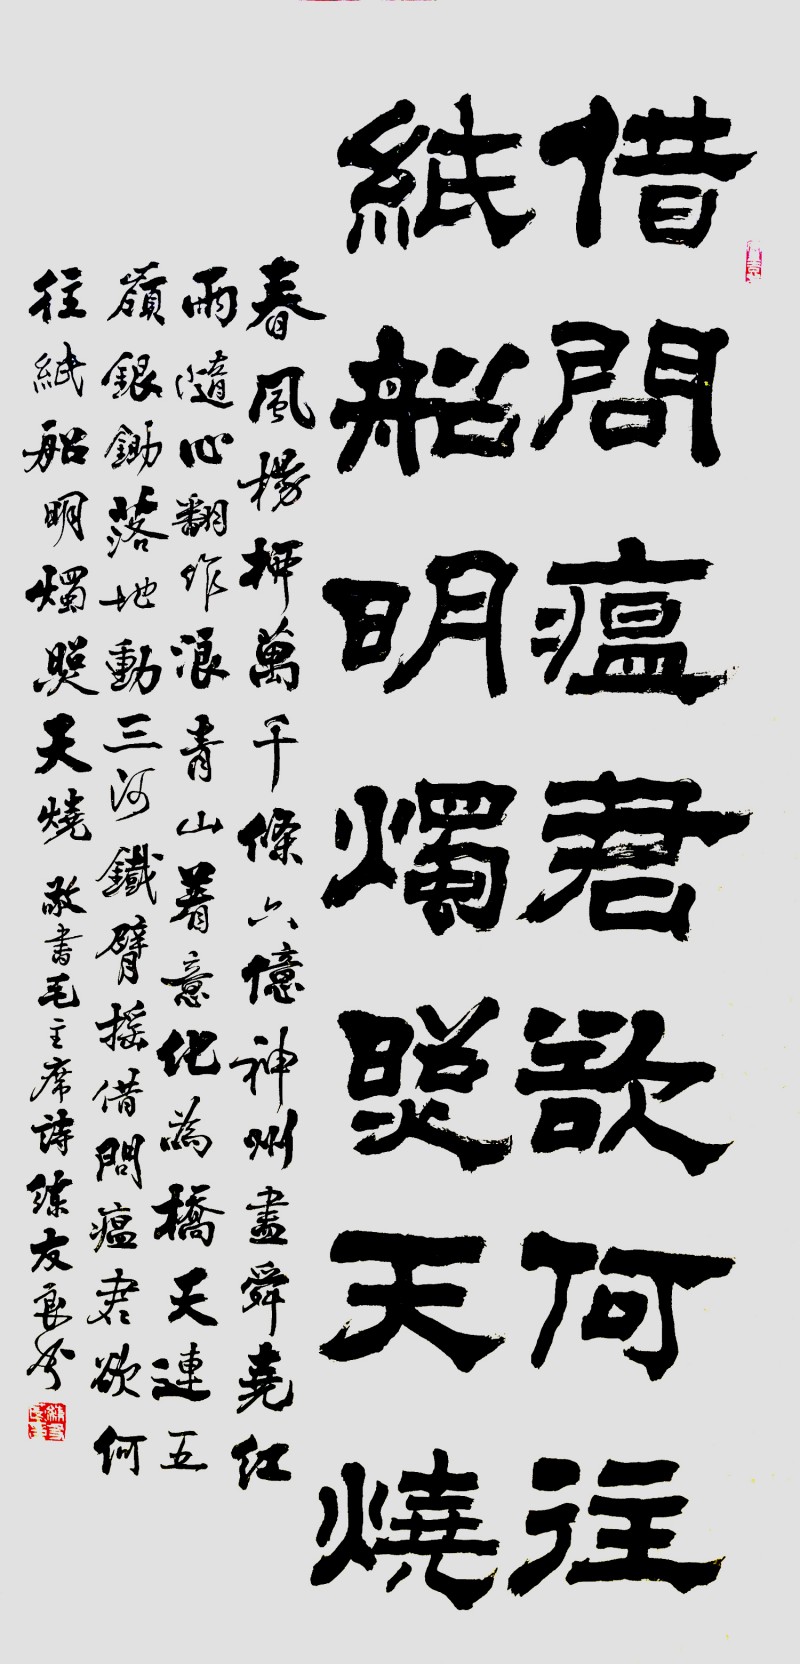 借問瘟君欲何往
紙船明燭照天燒
春風楊柳萬千條六億神州盡舜堯紅
雨隨心翻作浪青山着意化為橋天連五
嶺銀鋤落地動三河鐵臂搖借問瘟君欲何
往紙船明燭照天燒 敬書毛主席詩練友良